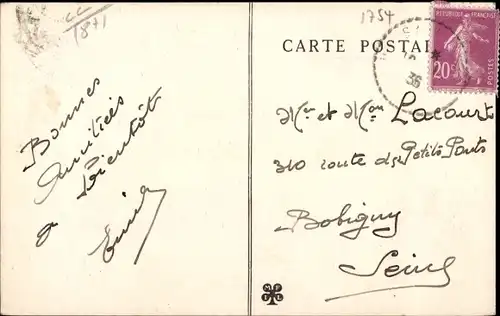 1871
1754
CARTE POSTAL
RÉPUBLIQUE FRANÇAISE
20c
POSTES
36
Bonnes
Amitiés
à Bientôt
Mr et Mme Lacourt
310 route des Petits Ponts
Bobigny
Seine